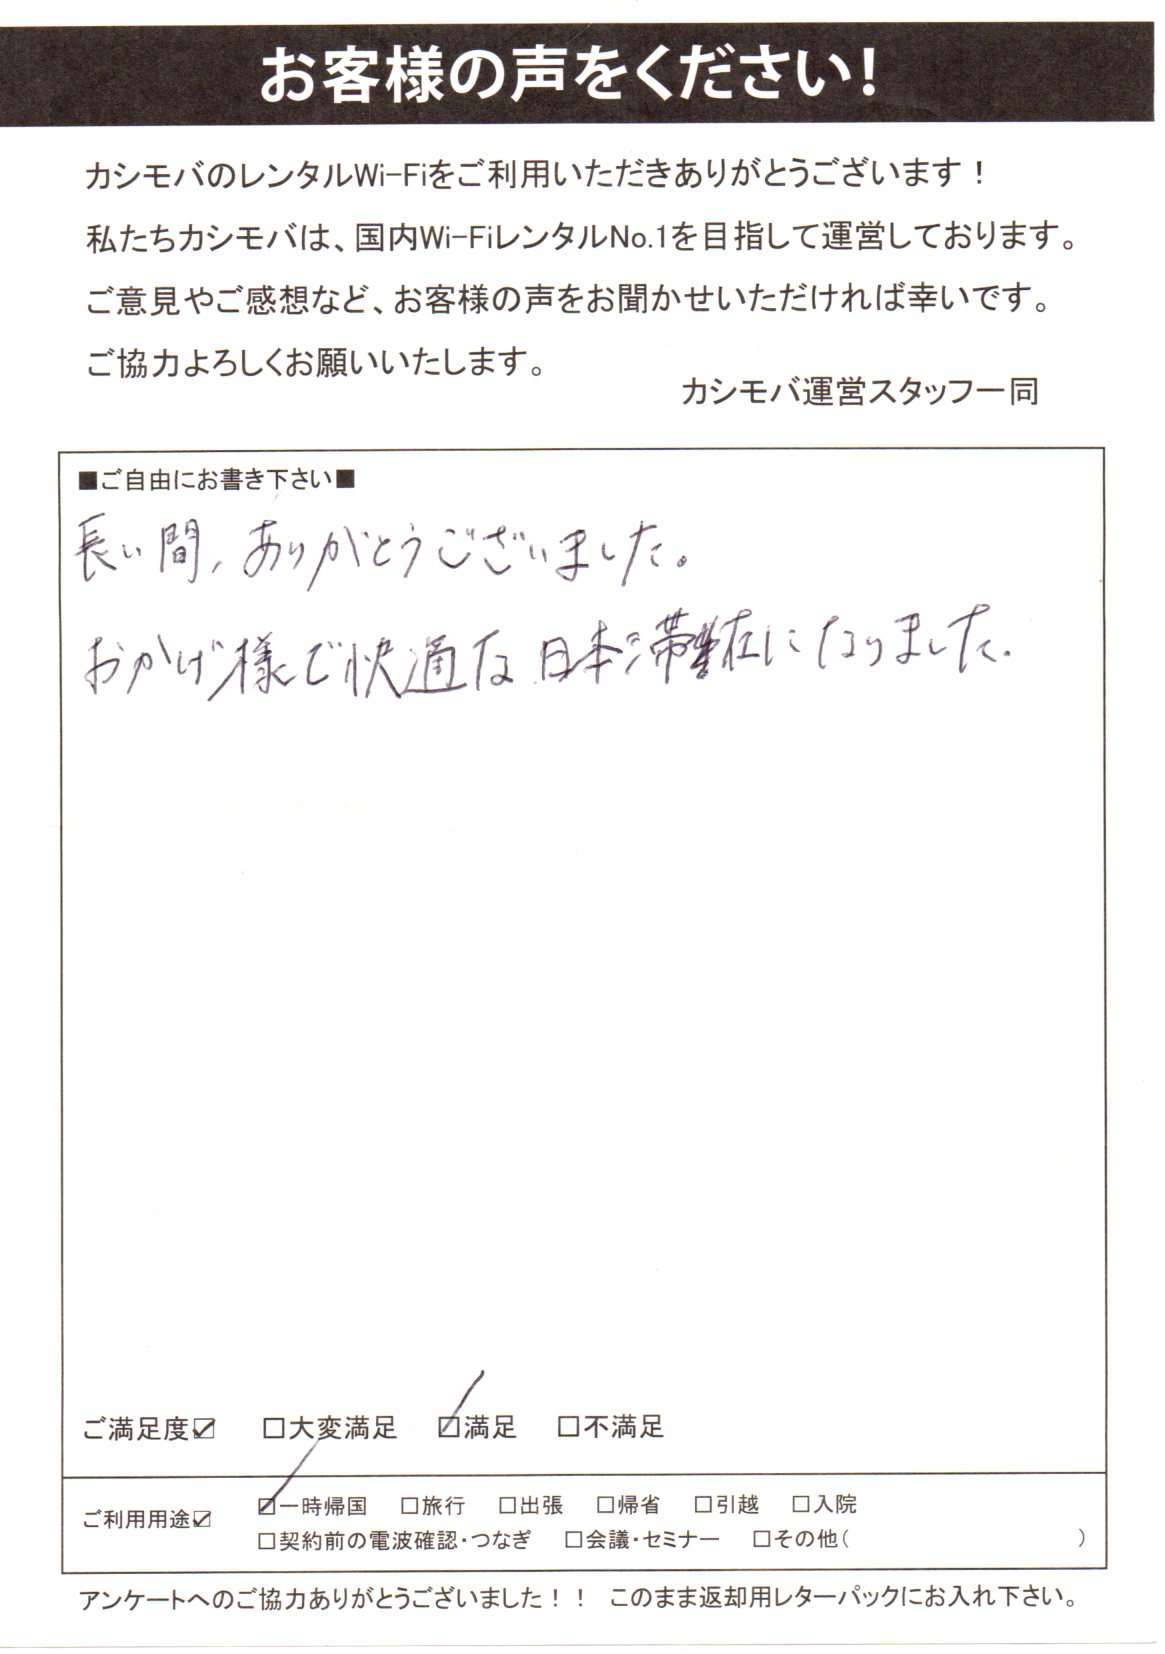 お客様の声をください!
カシモバのレンタルWi-Fiをご利用いただきありがとうございます！
私たちカシモバは、国内Wi-FiレンタルNo.1を目指して運営しております。
ご意見やご感想など、お客様の声をお聞かせいただければ幸いです。
ご協力よろしくお願いいたします。
カシモバ運営スタッフ一同
■ご自由にお書き下さい■
長い間、ありがとうございました。
おかげ様で快適な日本滞在になりました。
ご満足度☑ □大変満足 ☑満足 □不満足
ご利用用途☑ ☑一時帰国 □旅行 □出張 □帰省 □引越 □入院
□契約前の電波確認・つなぎ □会議・セミナー □その他( )
アンケートへのご協力ありがとうございました！！ このまま返却用レターパックにお入れ下さい。